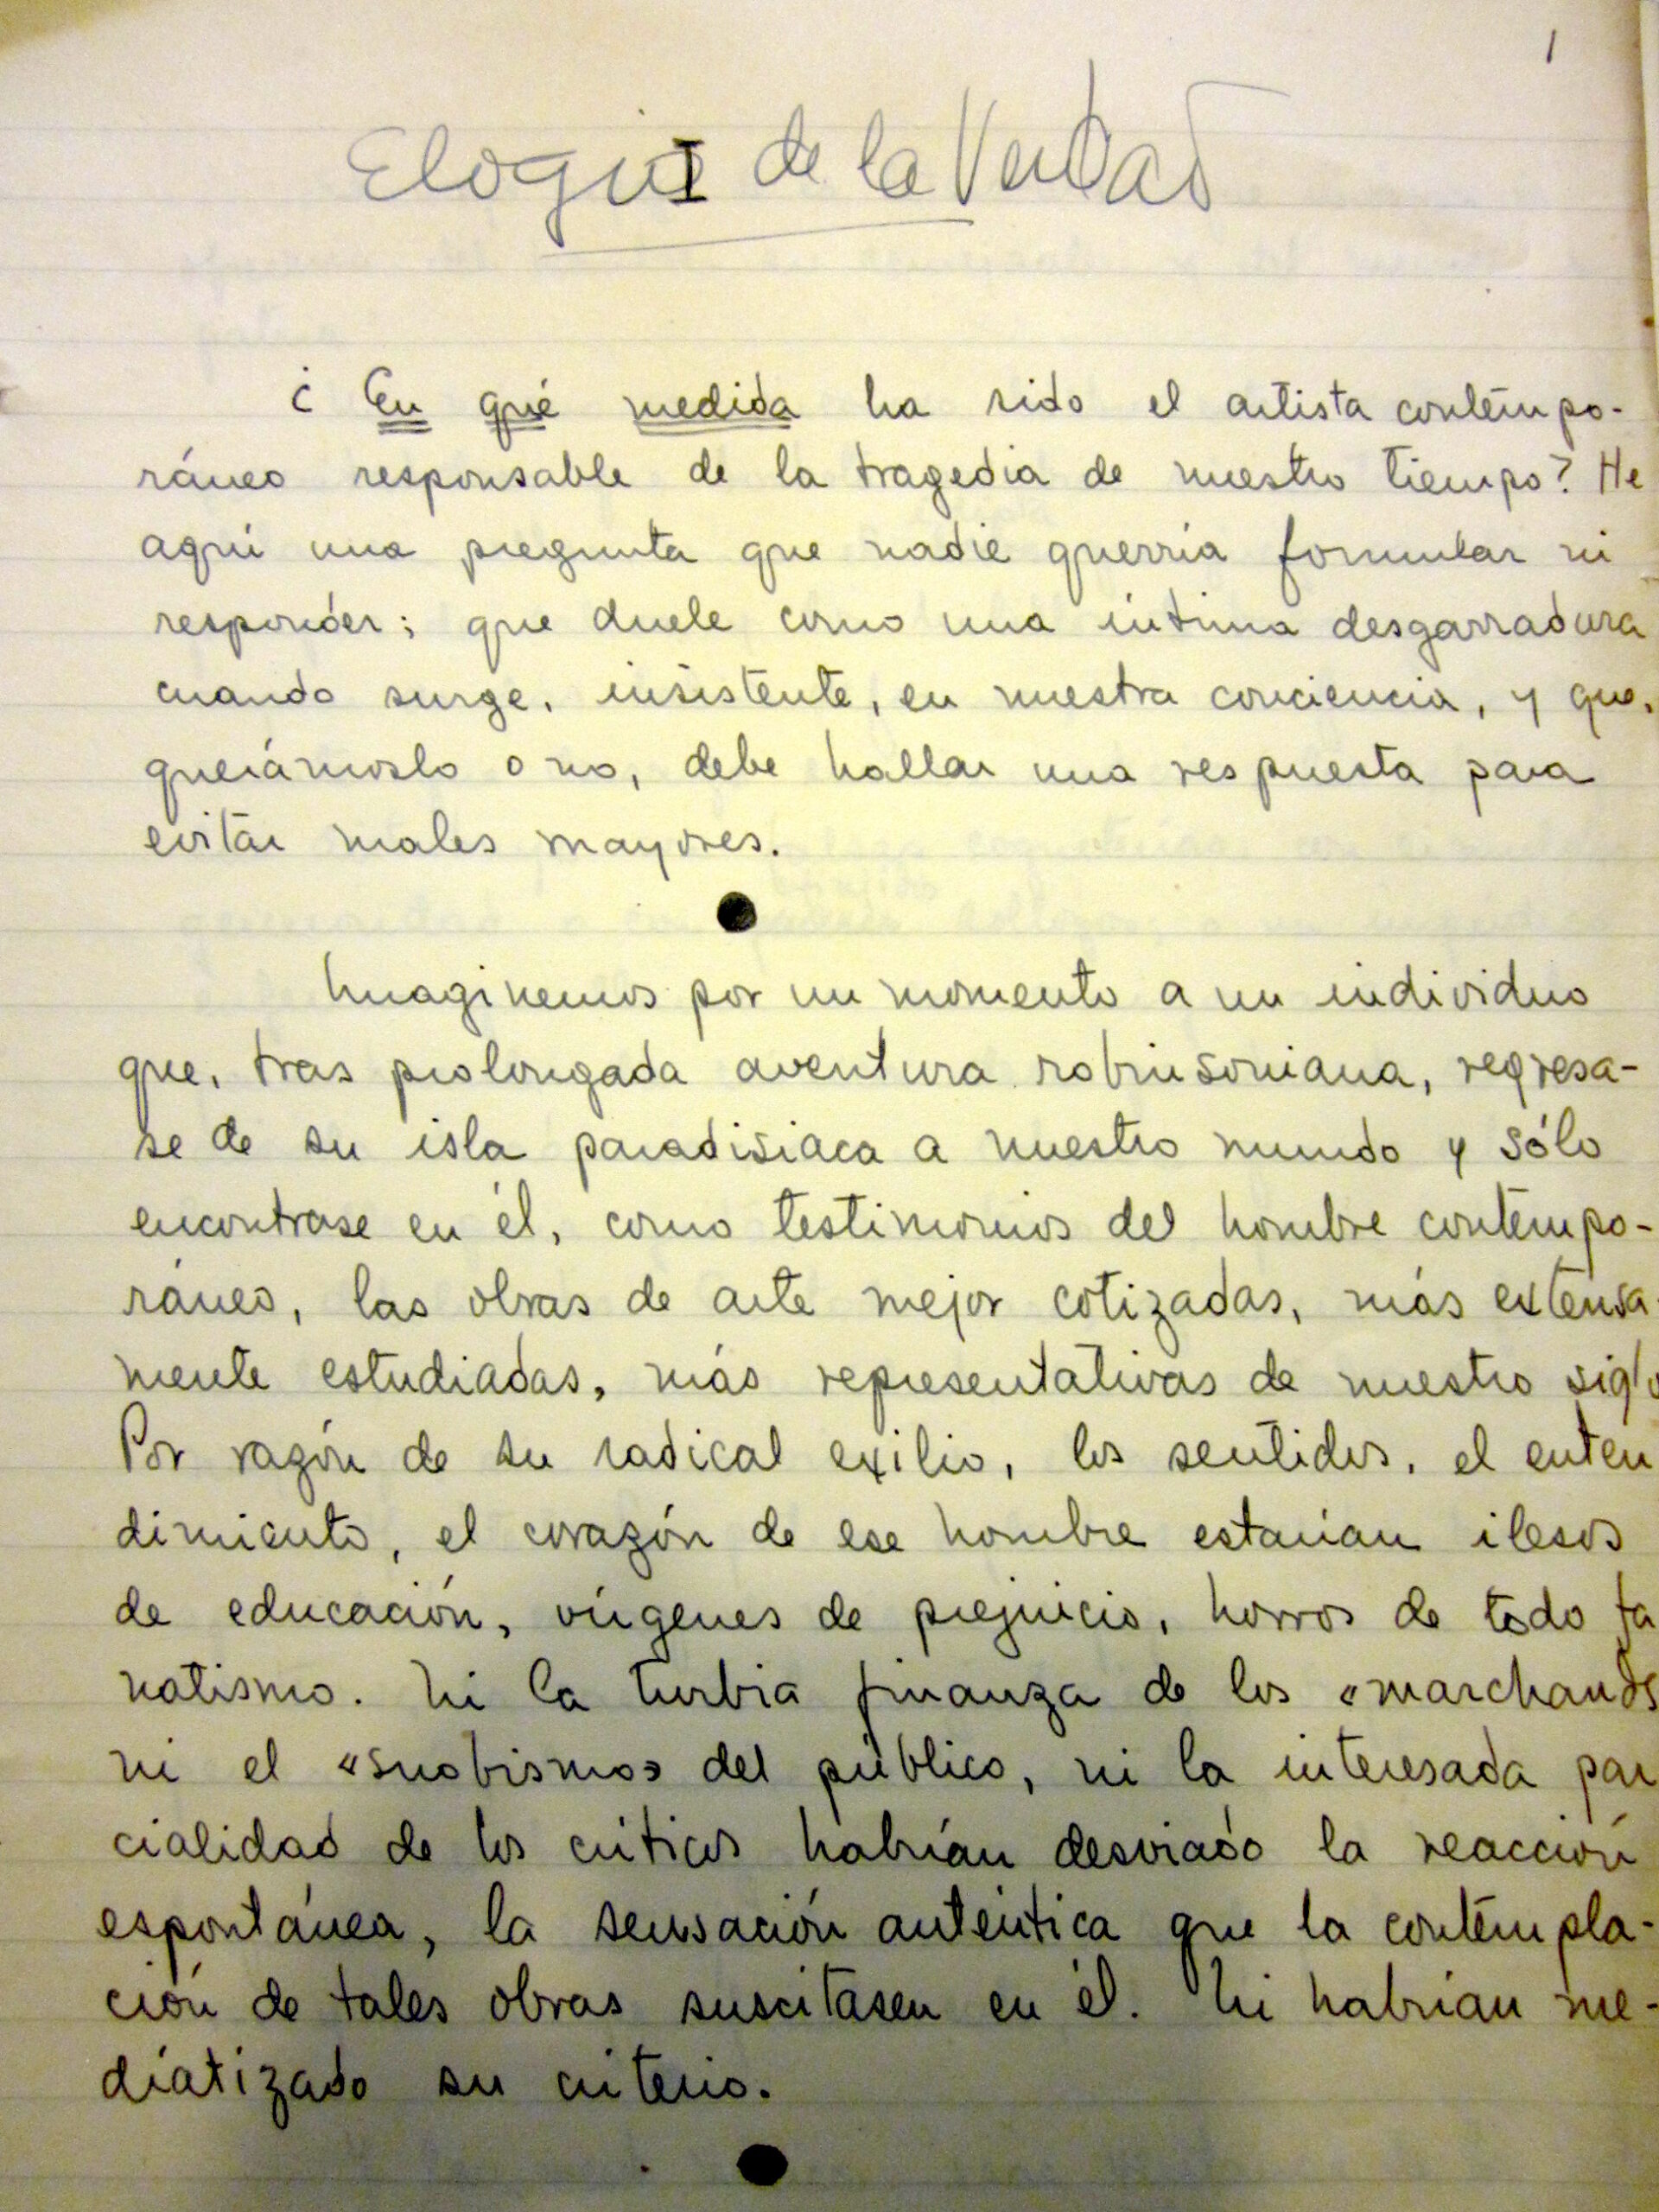 1
Elogio de la Verdad
I
¿ En qué medida ha sido el artista contempo-
ráneo responsable de la tragedia de nuestro tiempo? He
aquí una pregunta que nadie querría formular ni
responder; que duele como una íntima desgarradura
cuando surge, insistente, en nuestra conciencia, y que,
querámoslo o no, debe hallar una respuesta para
evitar males mayores.
Imaginemos por un momento a un individuo
que, tras prolongada aventura robinsoniana, regresa-
se de su isla paradisiaca a nuestro mundo y sólo
encontrase en él, como testimonios del hombre contempo-
ráneo, las obras de arte mejor cotizadas, más extensa-
mente estudiadas, más representativas de nuestro siglo
Por razón de su radical exilio, los sentidos, el enten
dimiento, el corazón de ese hombre estarían ilesos
de educación, vírgenes de prejuicio, horros de todo fa
natismo. Ni la turbia finanza de los «marchands
ni el «snobismo» del público, ni la interesada par
cialidad de los críticos habrían desviado la reacción
espontánea, la sensación auténtica que la contempla-
ción de tales obras suscitasen en él. Ni habrían me-
diatizado su criterio.